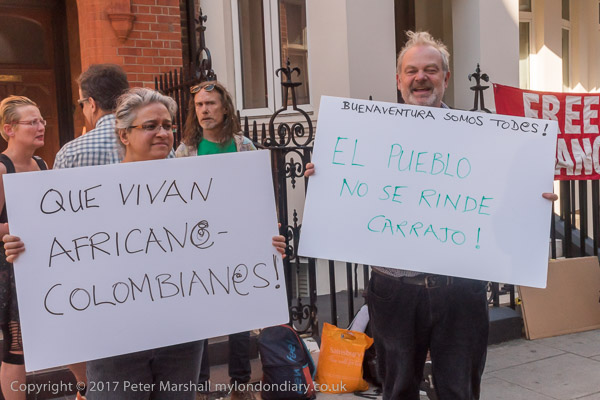 QUE VIVAN
AFRICAN@-
COLOMBIAN@S!
BUENAVENTURA SOMOS TOD@S!
EL PUEBLO
NO SE RINDE
CARRAJO!
FREE
Copyright © 2017 Peter Marshall mylondondiary.co.uk